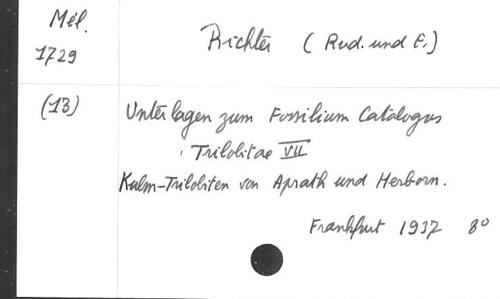 Mél.
1729
Richter (Rud. und E.)
(13)
Unterlagen zum Fossilium Catalogus
Trilobitae VII
Kulm-Trilobiten von Aprath und Herborn.
Frankfurt 1937 8°